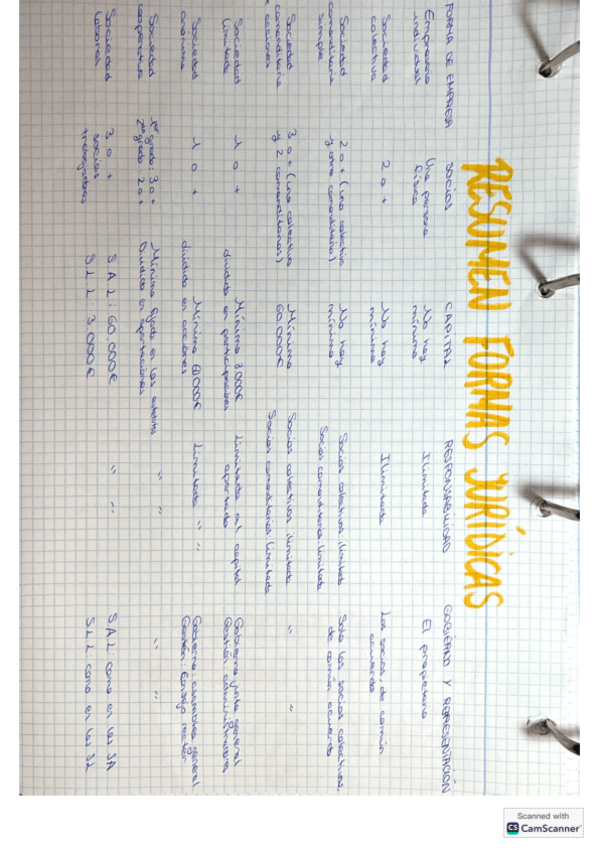 RESUMEN FORMAS JURÍDICAS
FORMA DE EMPRESA SOCIOS CAPITAL RESPONSABILIDAD GOBIERNO Y REPRESENTACIÓN
Empresario Una persona No hay Ilimitada El propietario
individual física mínimo
Sociedad 2 o + No hay Ilimitada Los socios, de común
colectiva mínimo acuerdo
Sociedad 2 o + (uno colectivo No hay Socios colectivos: ilimitada Solo los socios colectivos,
comanditaria y otro comanditario) mínimo Socios comanditarios: limitada de común acuerdo
simple
Sociedad 3 o + (uno colectivo Mínimo Socios colectivos ilimitada " "
comanditaria y 2 comanditarios) 60000€ Socios comanditarios: limitada
x acciones
Sociedad 1 o + Mínimo 3000€ Limitada al capital Gobierno: junta general
limitada dividido en participaciones aportado Gestión: administradores
Sociedad 1 o + Mínimo 60000€ Limitada " " Gobierno: asamblea general
anónima dividido en acciones Gestión: Consejo rector
Sociedad 1er grado: 3 o + Mínimo fijado en los estatutos " " " "
cooperativa 2º grado: 2 o + Dividido en aportaciones
Sociedad 3 o + S A L: 60.000€ " " S A L: como en las SA
laboral socios S L L: 3.000€ S L L: como en las SL
trabajadores
Scanned with
CS CamScanner